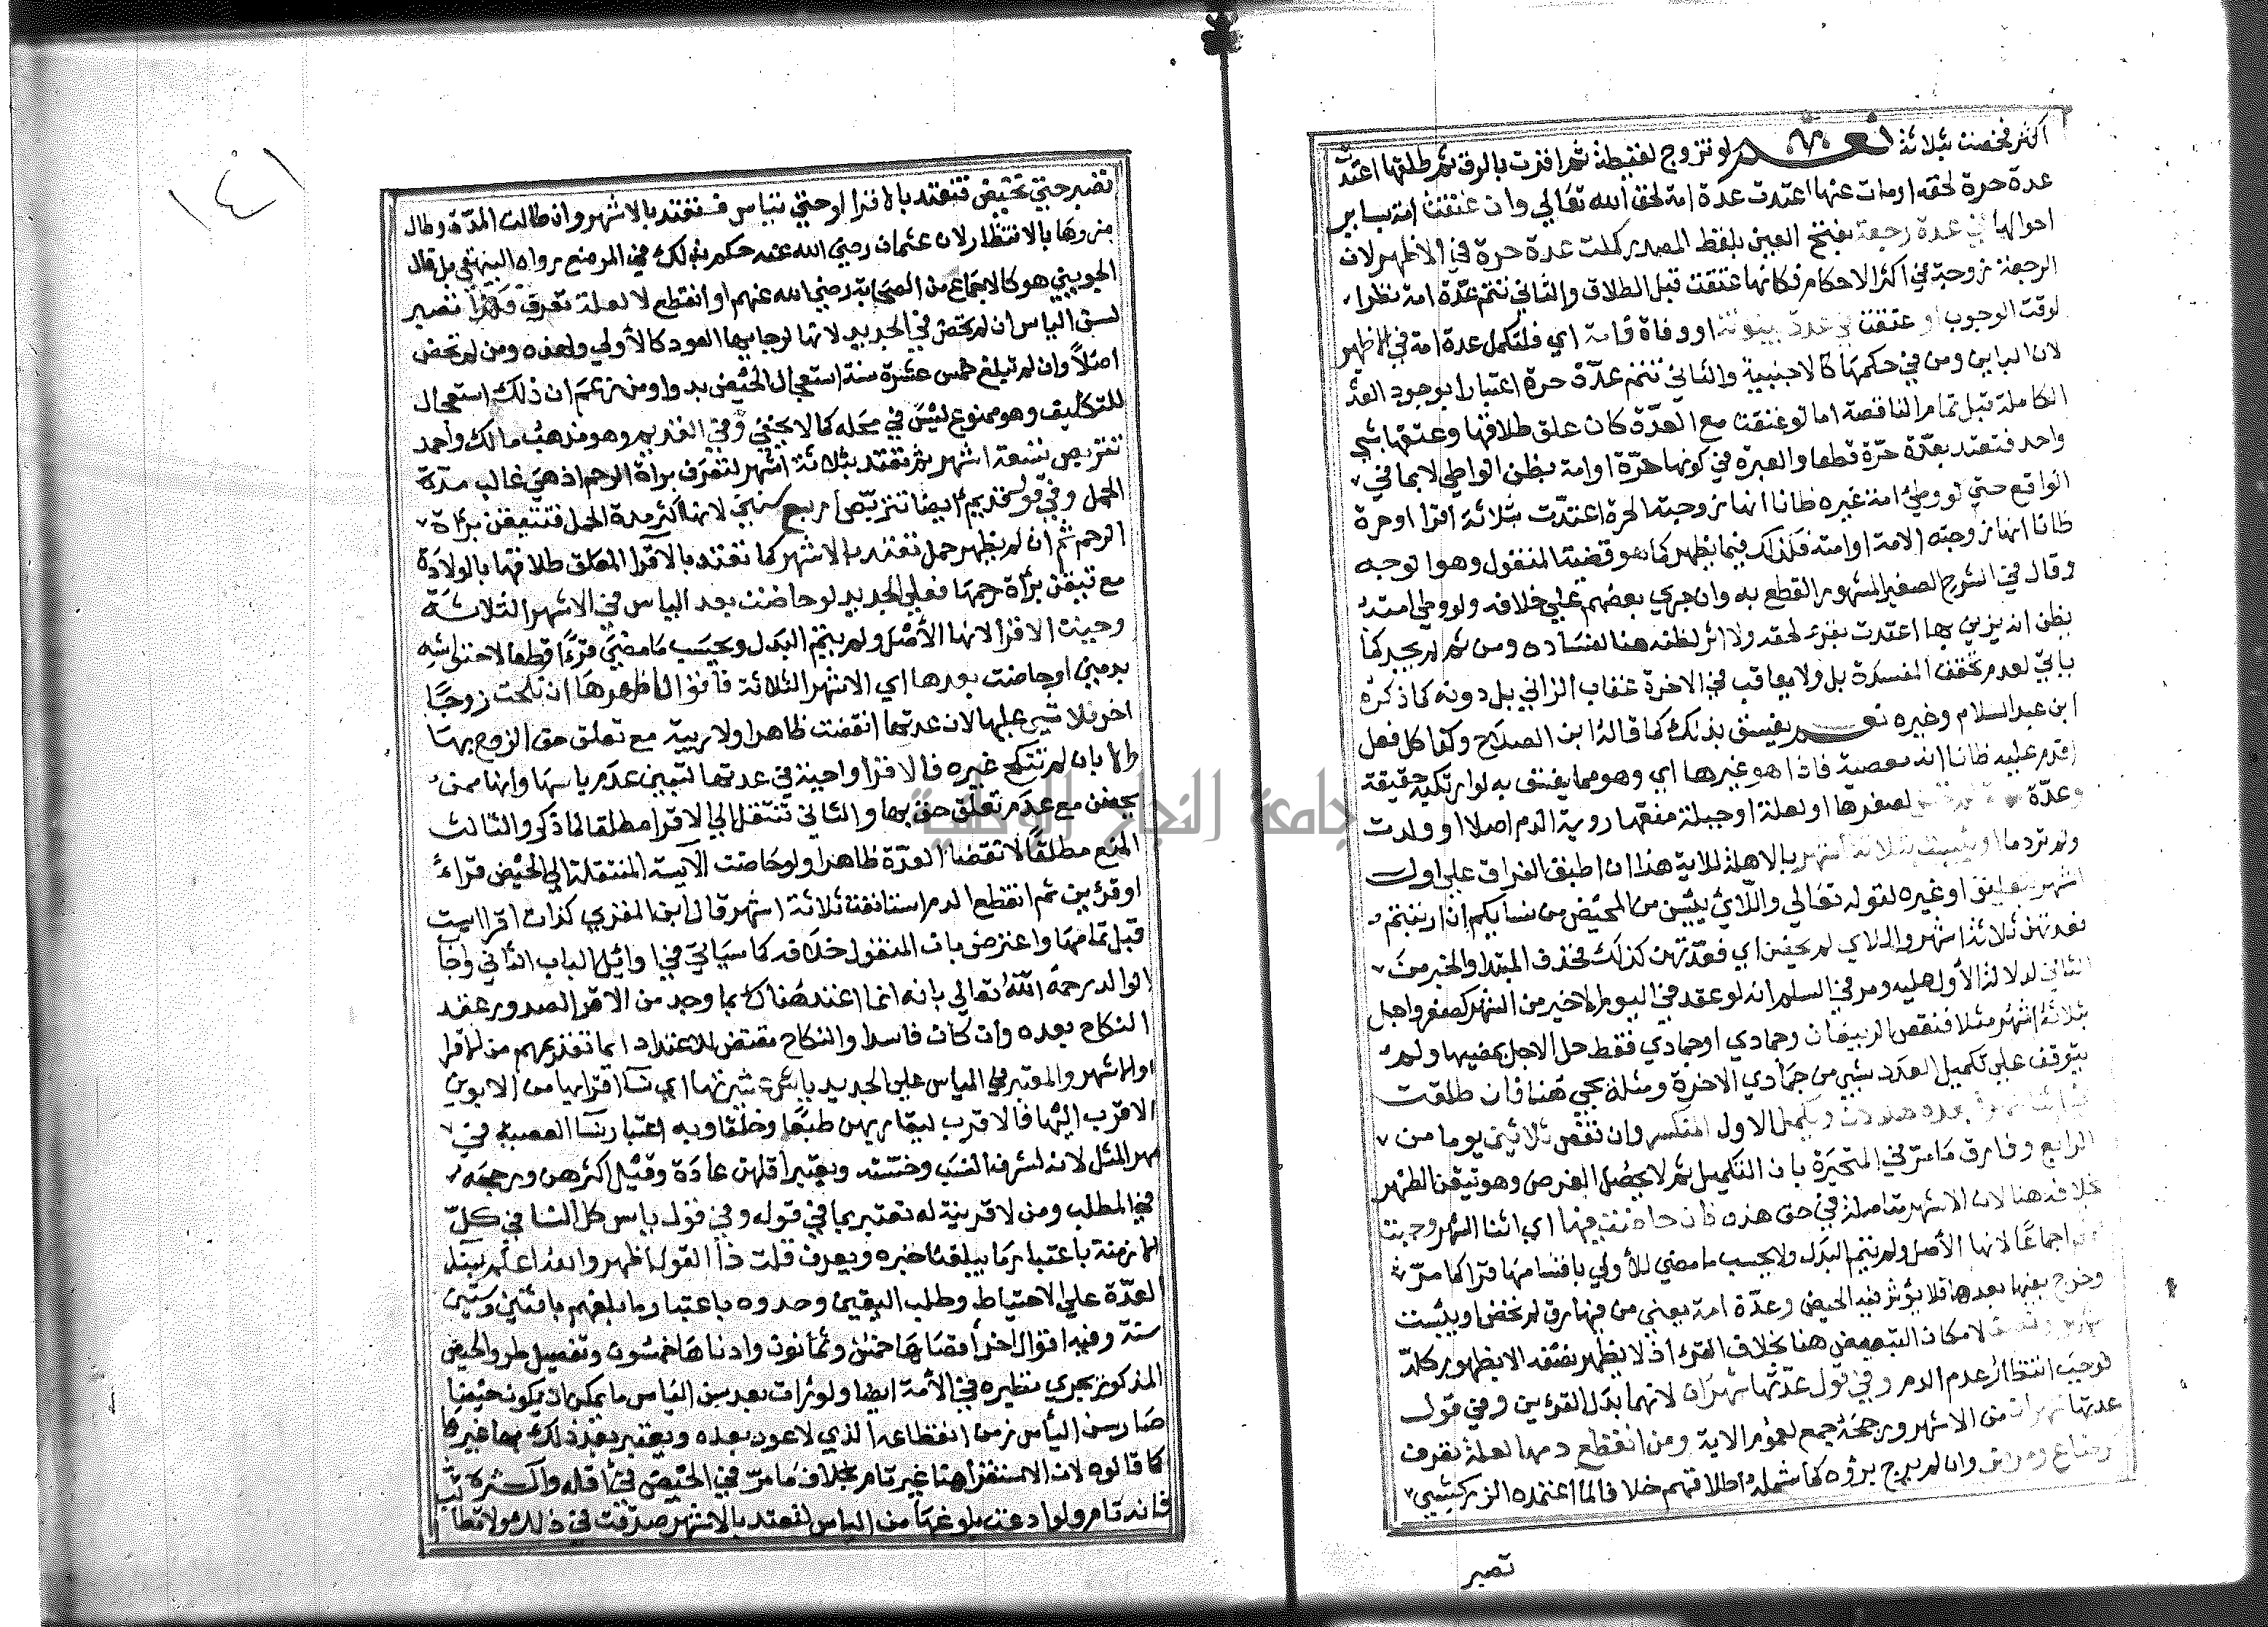 اكثر فخصت بثلاثة نعم لو تزوج لقيطة ثم اقرت بالرق ثم طلقها اعتدت
عدة حرة لحقه او مات عنها اعتدت عدة امة لحق الله تعالي وان عتقت امة بساير
احوالها في عدة رجعة بفتح العين بلفظ المصدر كملت عدة حرة في الاظهر لان
الرجعة زوجة في اكثر الاحكام فكانها عتقت قبل الطلاق والثاني تتم عدة امة نظرا
لوقت الوجوب او عتقت في عدة بينونة او وفاة فامة اي فلتكمل عدة امة في الاظهر
لان الباين ومن في حكمها كالاجنبية والثاني تتم عدة حرة اعتبارا بوجود العدة
الكاملة قبل تمام الناقصة اما لو عتقت مع العدة كان علق طلاقها وعتقها بشي
واحد فتعتد بعدة حرة قطعا والعبرة في كونها حرة او امة بظن الواطي لا بما في
الواقع حتي لو وطئ امة غيره ظانا انها زوجته الحرة اعتدت بثلاثة اقرا او حرة
ظانا انها زوجته الامة او امته فكذلك فيما يظهر كما هو قضية المنقول وهو اوجه
وقال في الشرح الصغير المشهور القطع به وان جري بعضهم علي خلافه ولو وطي امته
بظن انه يزني بها اعتدت بقرء لحقه ولا اثر لظنه هنا لفساده ومن ثم لم يحد كما
ياتي لعدم تحقق المفسدة بل ولا يعاقب في الاخرة عقاب الزاني بل دونه كما ذكره
ابن عبد السلام وغيره نعم يفسق بذلك كما قاله ابن الصلاح وكذا كل فعل
اقدم عليه ظانا انه معصية فاذا هو غيرها اي وهو مما يفسق به لو ارتكبه حقيقة
وعدة لصغرها او لعلة او جبلة منعها روية الدم اصلا او ولدت
ولم تر دما او يئست بثلاثة اشهر بالاهلة للاية هذا ان انطبق الفراق علي اول
اشهر بتعليق او غيره لقوله تعالي واللائي يئسن من المحيض من نسايكم ان ارتبتم
فعدتهن ثلاثة اشهر واللاي لم يحضن اي فعدتهن كذلك فحذف المبتدا والخبر من
الثاني لدلالة الاول عليه ومر في السلم انه لو عقد في اليوم الاخير من الشهر كصفر واجل
بثلاثة اشهر مثلا فنقص الربيعان وجمادي او جمادي فقط حل الاجل بمضيها ولم
يتوقف علي تكميل العدد بشي من جمادي الاخرة ومثله يجي هنا فان طلقت
في اثنا شهر بعده هلالان ويكمل الاول المنكسر وان نقص ثلاثين يوما من
الرابع وفارق ما مر في المتحيرة بان التكميل ثم لا يحصل الغرض وهو تيقن الطهر
خلافه هنا لان الاشهر متاصلة في حق هذه فان حاضت فيها اي اثنا الشهر وجبت
اجماعا لانها الاصل ولم تتم البدل ولا يحسب ما مضي للاولي باقسامها قرا كما مر
وخرج بفيها بعدها فلا يؤثر فيه الحيض وعدة امة يعني من فيها رق لم تحض او يئست
شهر ونصف لامكان التبعيض هنا بخلاف القرء اذ لا يظهر نصفه الا بظهور كله
فوجب انتظار عدم الدم وفي قول عدتها شهران لانهما بدل القرءين وفي قول
عدتها ثلاث من الاشهر ورجحه جمع لعموم الاية ومن انقطع دمها لعلة تعرف
كرضاع ومرض وان لم يرج برؤه كما شمله اطلاقهم خلافا لما اعتمده الزركشي
تصبر
تصبر حتي تحيض فتعتد بالاقرا او حتي تياس فتعتد بالاشهر وان طالت المدة وطال
ضررها بالانتظار لان عثمان رضي الله عنه حكم بذلك في المرضع رواه البيهقي بل قال
الجويني هو كالاجماع من الصحابة رضي الله عنهم او انقطع لا لعلة تعرف فكذا تصبر
لسن الياس ان لم تحض في الجديد لانها لرجايها العود كالاولي ولهذه ومن لم تحض
اصلا وان لم تبلغ خمس عشرة سنة استعجال الحيض بدوا ومن زعم ان ذلك استعجال
للتكليف وهو ممنوع ليس في محله كما لا يخفي وفي القديم وهو مذهب مالك واحمد
تتربص تسعة اشهر ثم تعتد بثلاثة اشهر لتعرف براة الرحم اذ هي غالب مدة
الحمل وفي قول قديم ايضا تتربص اربع سنين لانها اكثر مدة الحمل فتتيقن براة
الرحم ثم ان لم يظهر حمل تعتد بالاشهر كما تعتد بالاقرا المعلق طلاقها بالولادة
مع تيقن براة رحمها فعلي الجديد لو حاضت بعد الياس في الاشهر الثلاثة
وجبت الاقرا لانها الاصل ولم يتم البدل ويحسب ما مضي قرءا قطعا لاحتواشه
بدمين او حاضت بعدها اي الاشهر الثلاثة فاقوال اظهرها ان نكحت زوجا
اخر فلا شي عليها لان عدتها انقضت ظاهرا ولا ريبة مع تعلق حق الزوج بها
والا بان لم تنكح غيره فالاقرا واجبة في عدتها لتبين عدم ياسها وانها ممن
يحضن مع عدم تعلق حق بها والثاني تنتقل الي الاقرا مطلقا لما ذكر والثالث
المنع مطلقا لانقضا العدة ظاهرا ولو حاضت الآيسة المنتقلة الي الحيض قراء
او قرئين ثم انقطع الدم استانفت ثلاثة اشهر قال ابن المقري كذات اقرا ايست
قبل تمامها واعترض بان المنقول خلافه كما سياتي في اوائل الباب الثاني واجا
الوالد رحمه الله تعالي بانه انما اعتد هناك بما وجد من الاقرا لصدور عقد
النكاح بعده وان كان فاسدا والنكاح مقتض للاعتداد بما تقدم من الاقرا
او الاشهر والمعتبر في الياس علي الجديد ياس عشيرتها اي نسا اقرابها من الابوين
الاقرب اليها فالاقرب لتقاربهن طبعا وخلقا وبه اعتبار نسا العصبة في
مهر المثل لانه لشرف النسب وخسته ويعتبر اقلهن عادة وقيل اكثرهن ورجحه
في المطلب ومن لا قرينة له تعتبر بما في قوله وفي قول ياس كل النسا في كل
الازمنة باعتبار ما يبلغنا خبره ويعرف قلت ذا القول اظهر والله اعلم لبناء
العدة علي الاحتياط وطلب اليقين وحدوه باعتبار ما بلغهم باثنين وستين
سنة وفيه اقوال اخر اقصاها خمس وثمانون وادناها خمسون وتفصيل طرو الحيض
المذكور يجري نظيره في الامة ايضا ولو رات بعد سن الياس ما يمكن ان يكون حيضا
صار سن الياس زمن انقطاعه الذي لا عود بعده ويعتبر بعد ذلك بها غيرها
كما قالوه لان الاستقرا هنا غير تام بخلاف ما مر في الحيض في اقله واكثره
فانه تام ولو ادعت بلوغها سن الياس لتعتد بالاشهر صدقت في ذلك ولا تطالب
١٤١
جامعة النجاح الوطنية